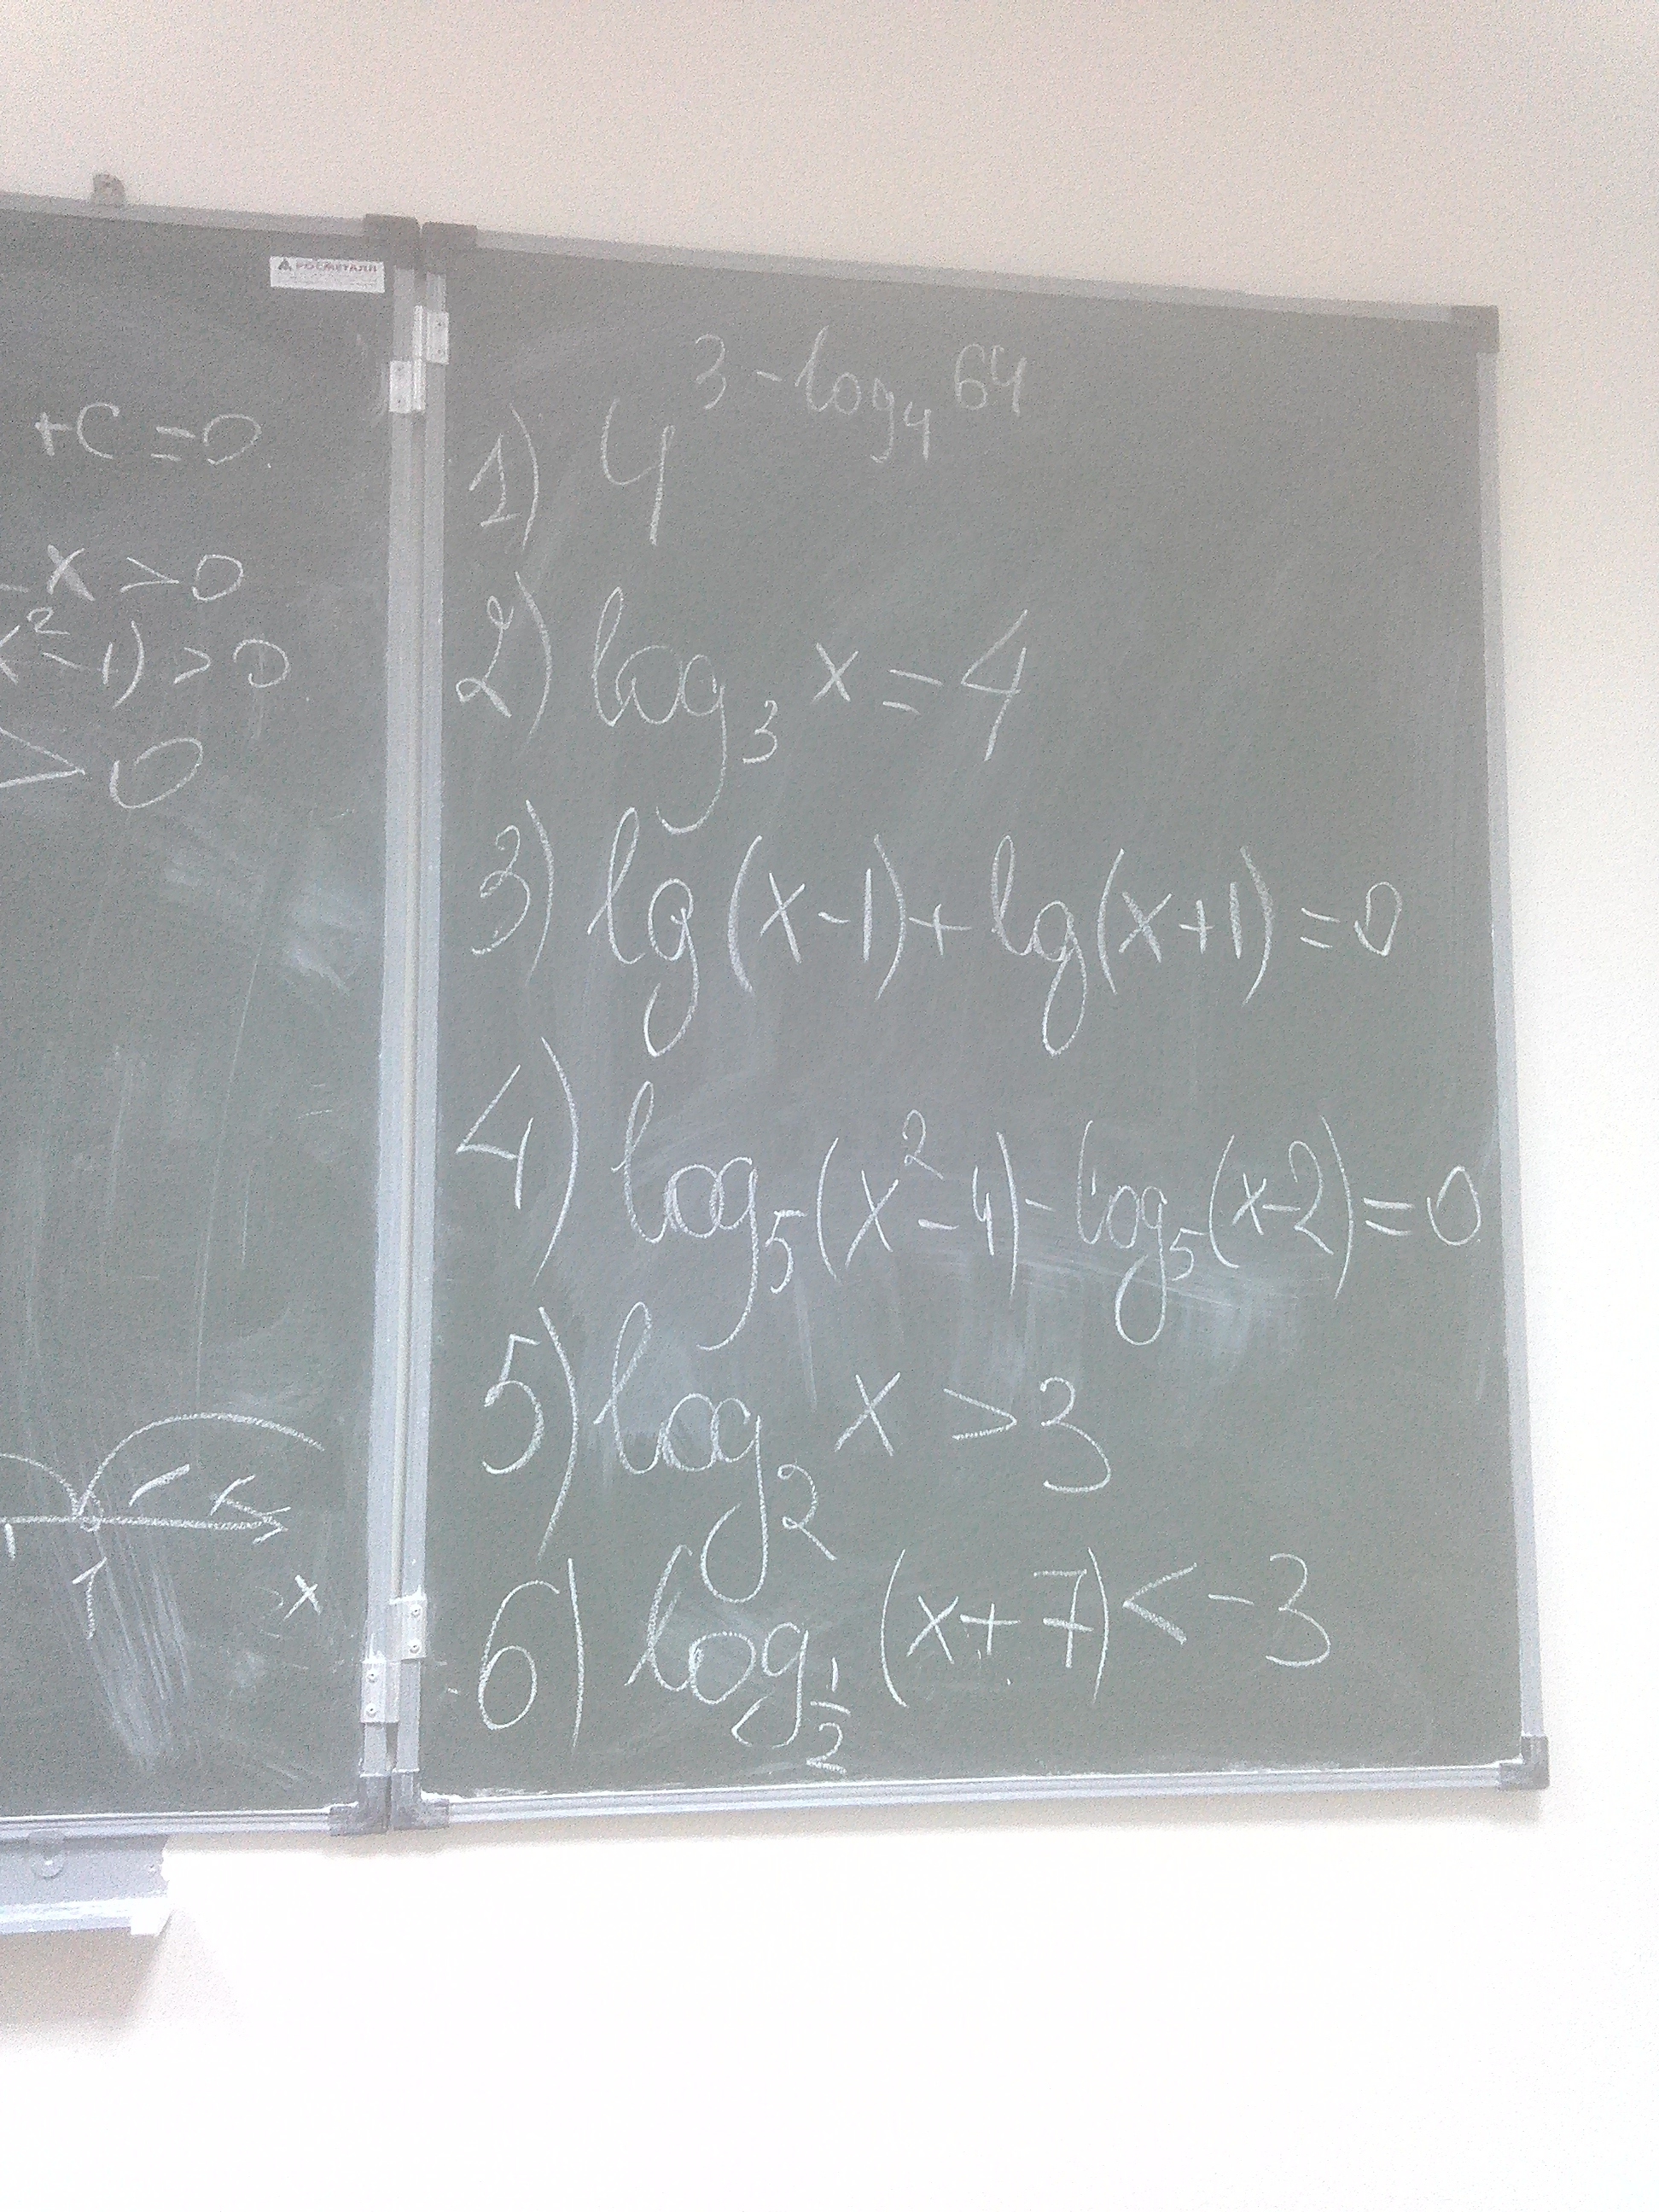 РОСМЕТАЛЛ
+C=0
-x>0
x²-1)>0
>0
1
x
1) 4^(3-log₄64)
2) log₃ x=4
3) lg(x-1)+lg(x+1)=0
4) log₅(x²-4)-log₅(x-2)=0
5) log₂ x>3
6) log_(1/2) (x+7)<-3